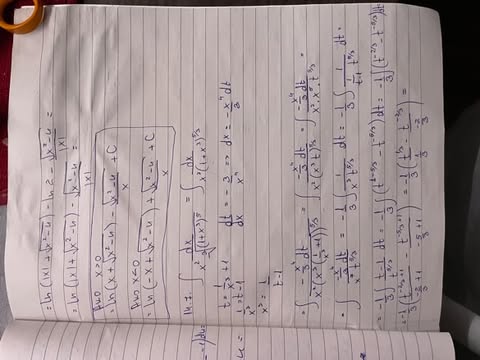 = ln (|x| + √(x²-4)) - ln 2 - √(x²-4)/|x| =
= ln (|x| + √(x²-4)) - √(x²-4)/|x| =
x > 0
= ln (x + √(x²-4)) - √(x²-4)/x + C
x < 0
= ln (-x + √(x²-4)) + √(x²-4)/x + C
14.7. ∫ dx/(x² ∛((1+x³)⁵)) = ∫ dx/(x²(1+x³)^(5/3))
t = 1/x³ + 1 dt/dx = -3/x⁴ => dx = -x⁴/3 dt
1/x³ = t-1
x³ = 1/(t-1)
= ∫ (-x⁴/3 dt)/(x²(x³(1/x³+1))^(5/3)) = ∫ (-x⁴/3 dt)/(x²(x³t)^(5/3)) = ∫ (-x⁴/3 dt)/(x²·x⁵·t^(5/3)) =
= ∫ (-x⁴/3 dt)/(x⁷ t^(5/3)) = -1/3 ∫ 1/(x³ t^(5/3)) dt = -1/3 ∫ 1/(1/(t-1) t^(5/3)) dt =
= -1/3 ∫ (t-1)/t^(5/3) dt = -1/3 ∫ (t^(1-5/3) - t^(-5/3)) dt = -1/3 ∫ (t^(-2/3) - t^(-5/3)) dt
= -1/3 (t^(-2/3+1)/(-2/3+1) - t^(-5/3+1)/(-5/3+1)) = -1/3 (t^(1/3)/(1/3) - t^(-2/3)/(-2/3)) =